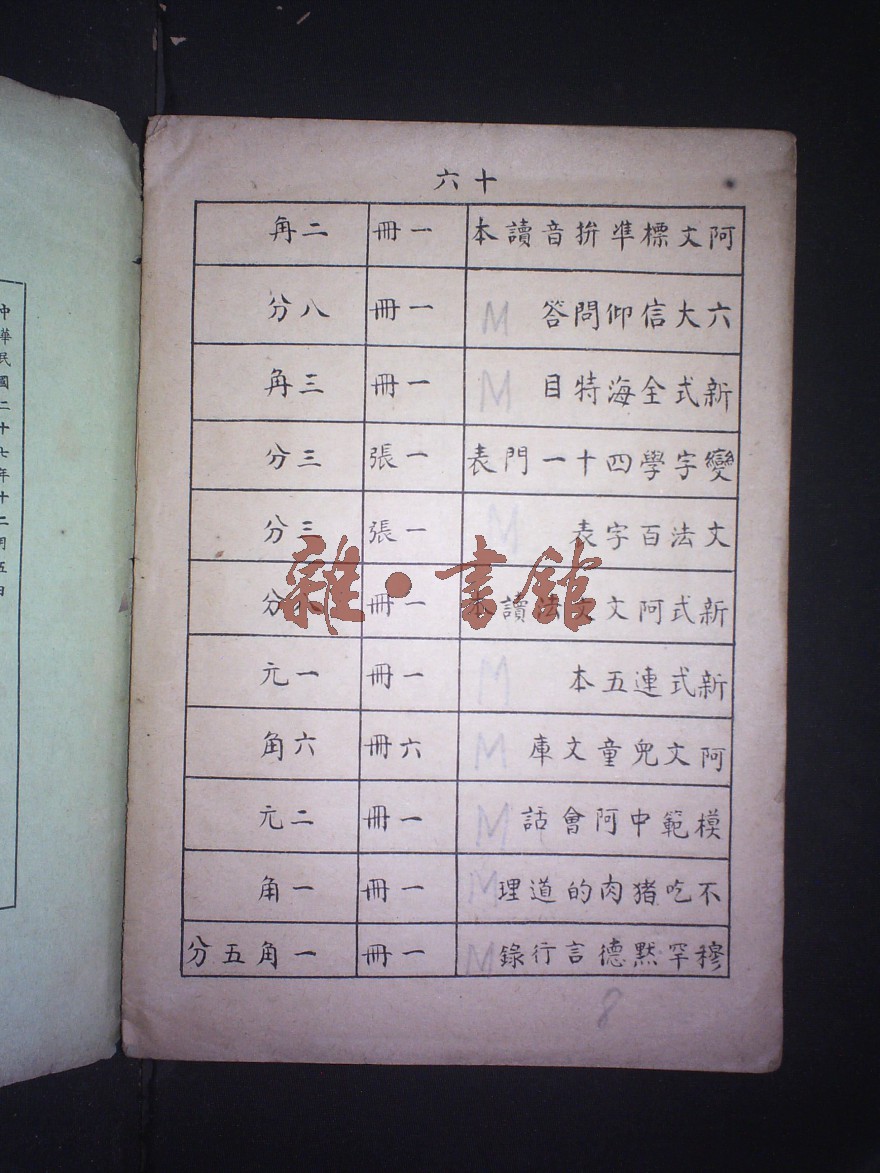 十六
阿文標準拚音讀本 一冊 二角
六大信仰問答 一冊 八分
新式全海特目 一冊 三角
變字學四十一門表 一張 三分
文法百字表 一張 三分
新式阿文文法讀本 一冊 分
新式連五本 一冊 一元
阿文兒童文庫 六冊 六角
模範中阿會話 一冊 二元
不吃猪肉的道理 一冊 一角
穆罕黙德言行錄 一冊 一角五分
M
M
M
M
M
M
M
M
8
中華民國二十七年十二月五日
雜·書館